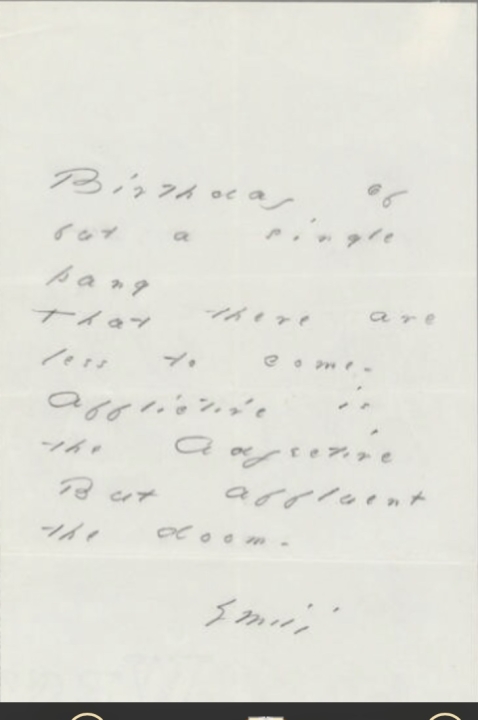 Birthday of
but a single
pang
That there are
less to come -
Afflictive is
the Adjective
But affluent
the doom -
Emily